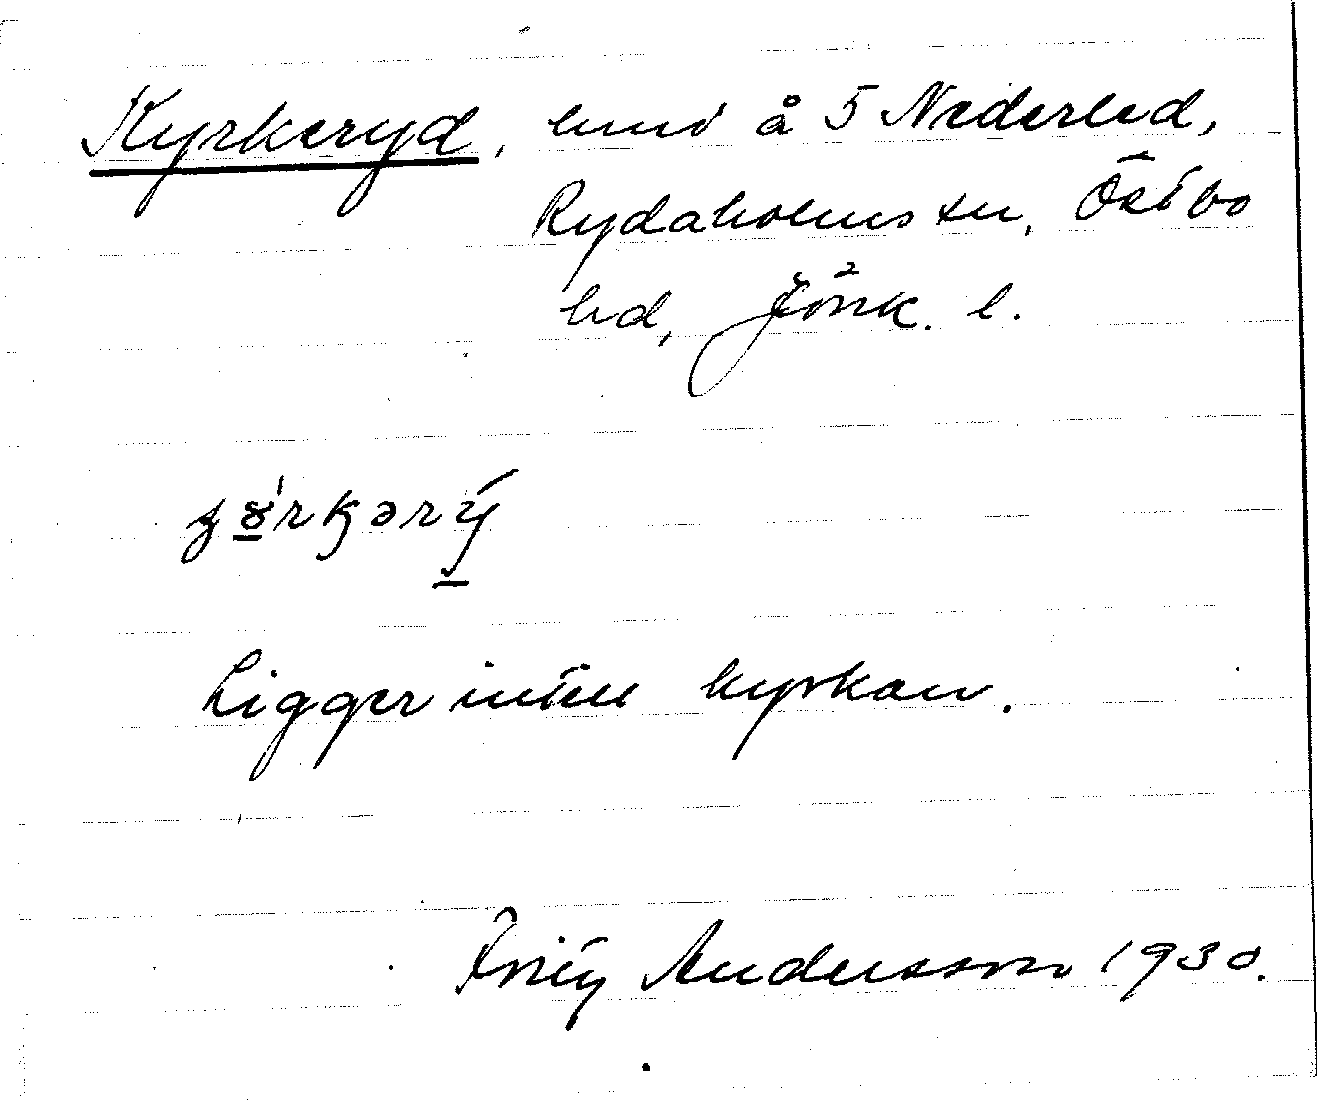 Kyrkeryd, lund å 5 Nederled,
Rydaholms sn, Östbo
hd, Jönk. l.
Ligger intill kyrkan.
Andersson 1930.